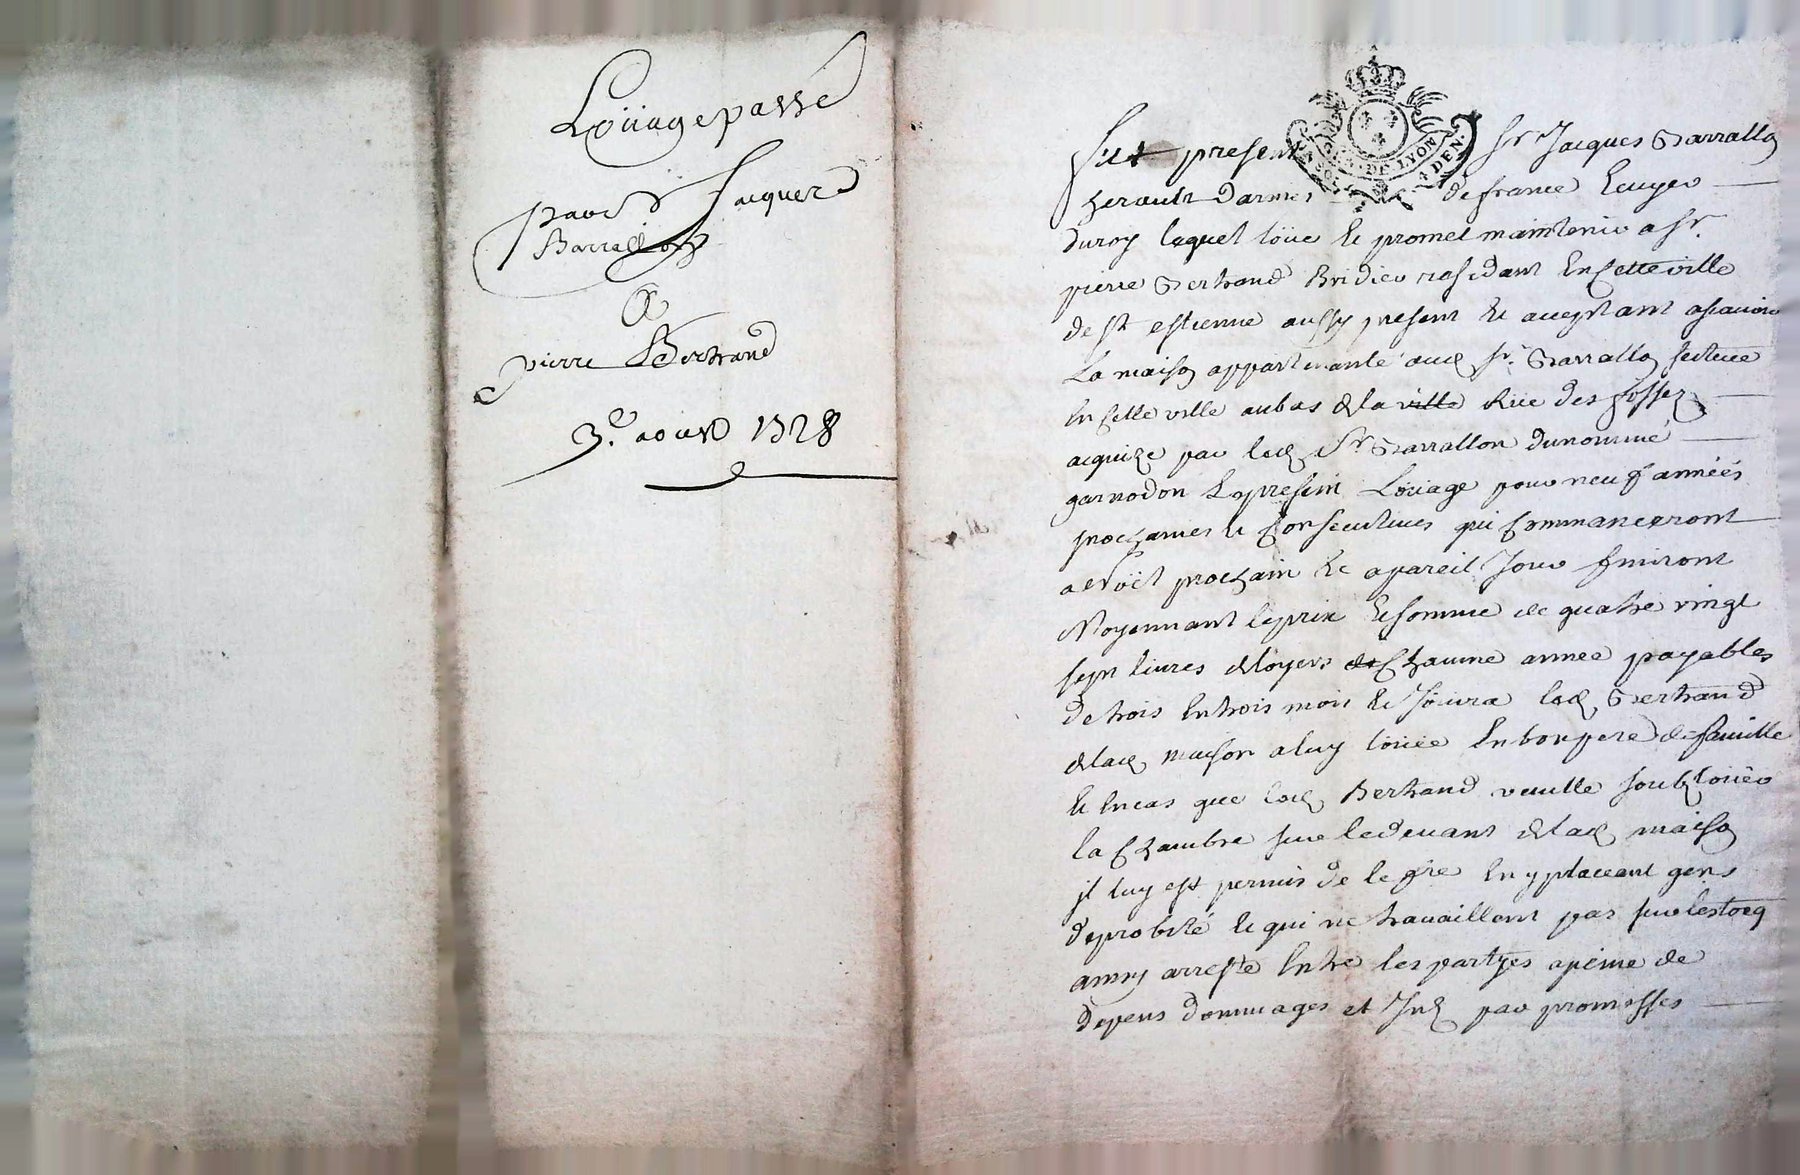 Loüage passé
par Sr Jacques
Barrallon
A
pierre Bertrand
3.e aoust 1728
GEN. DE LYON
SOLS 4 DEN.
fut present Sr Jacques Barrallon
herault Darmes de france Ecuyer
du roy lequel loüe et promet maintenir a Sr
pierre Bertrand residant En Cette ville
de St estienne aussy present et acceptant ascavoir
La maison appartenante aud Sr Barrallon scituee
En Cette ville au bas de la ville Rüe des fossez
acquize par led Sr Barrallon du nommé
garnodon Le present Loüage pour neuf années
prochaines et Consecutives qui Commanceront
a la prochain et a pareil Jour finiront
Moyennant le prix et somme de quatre vingt
sept livres de loyers de Chacune annee payables
de trois En trois mois et Jouira led Bertrand
de lad maison a luy loüée En bon pere de famille
et En cas que led Bertrand veuille soubzloüer
la Chambre sur le devant de lad maison
il luy est permis de le fre En y placeant gens
de probité et qui ne travaillent pas sur
ainsy arresté Entre les partyes a peine de
depens dommages et Intz par promesses